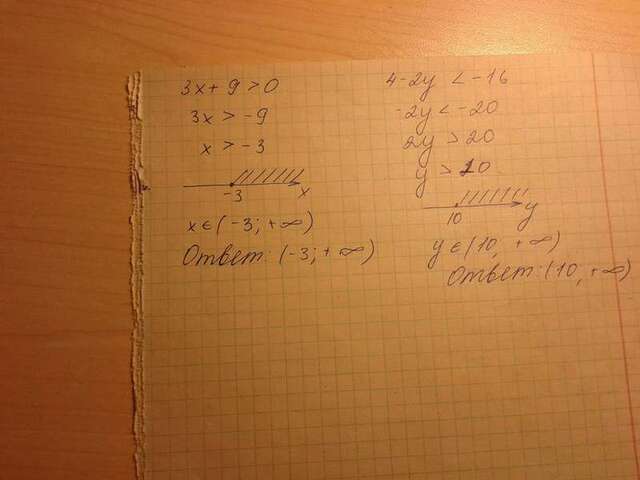 3x + 9 > 0
3x > -9
x > -3
-3 x
x ∈ (-3; +∞)
Ответ: (-3; +∞)
4-2y < -16
-2y < -20
2y > 20
y > 10
10 y
y ∈ (10, +∞)
Ответ: (10, +∞)